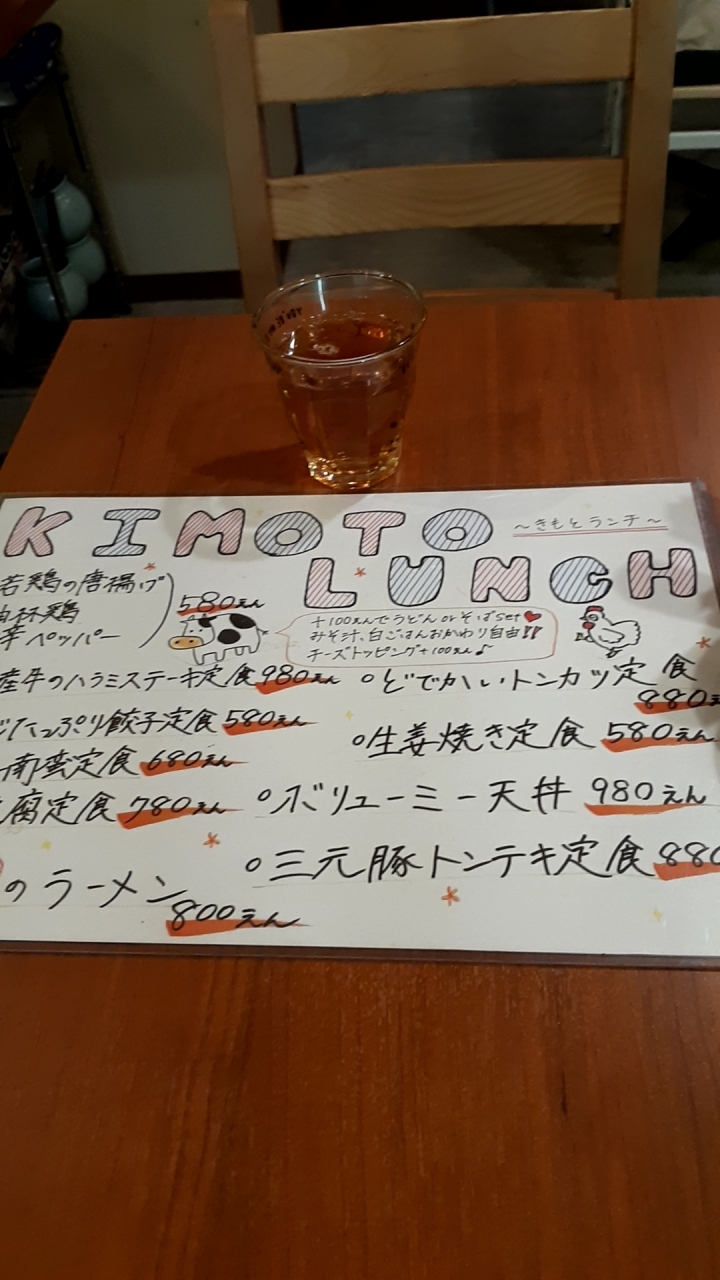 KIMOTO
LUNCH
～きもとランチ～
若鶏の唐揚げ
油淋鶏
辛ペッパー
580えん
+100えんでうどん or そばset
みそ汁、白ごはんおかわり自由!!
チーズトッピング+100えん♪
産牛のハラミステーキ定食 980えん
どでかいトンカツ定食
880え
たっぷり餃子定食 580えん
生姜焼き定食 580えん
南蛮定食 680えん
腐定食 780えん
ボリューミー天丼 980えん
三元豚トンテキ定食 880
のラーメン
800えん